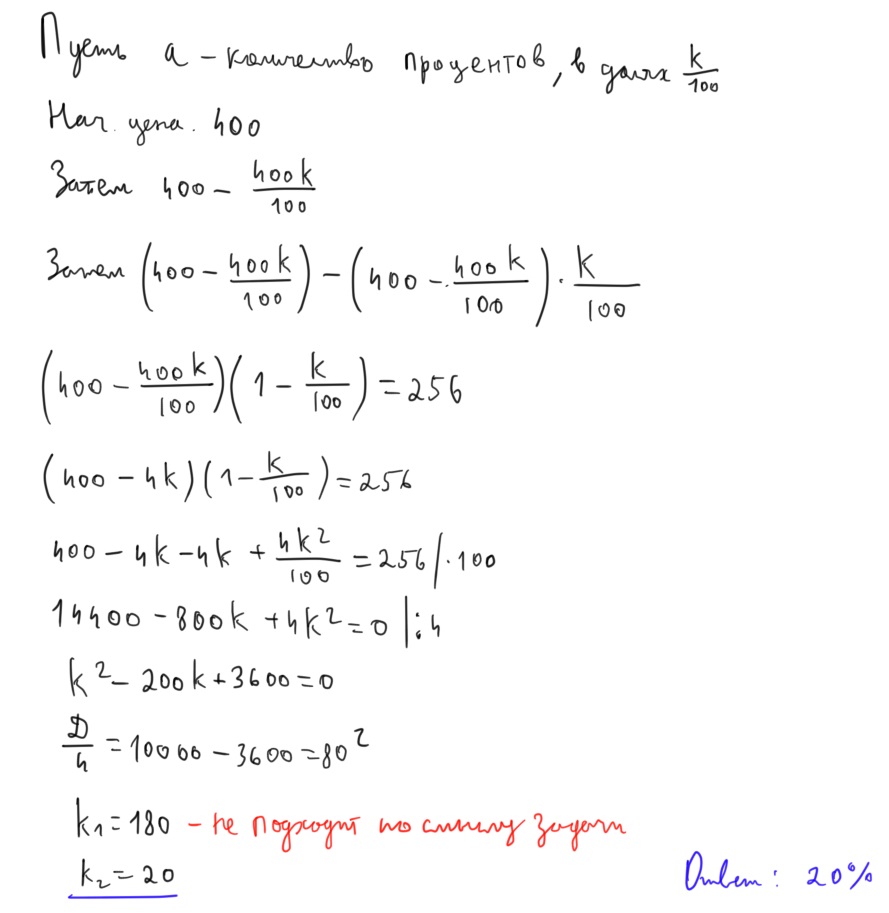 Пусть a – количество процентов, в долях k/100
Нач. цена. 400
Затем 400 – 400k/100
Затем (400 – 400k/100) – (400 – 400k/100) · k/100
(400 – 400k/100)(1 – k/100) = 256
(400 – 4k)(1 – k/100) = 256
400 – 4k – 4k + 4k²/100 = 256 | · 100
14400 – 800k + 4k² = 0 | : 4
k² – 200k + 3600 = 0
D/4 = 10000 – 3600 = 80²
k₁ = 180 – не подходит по смыслу задачи
k₂ = 20
Ответ: 20%